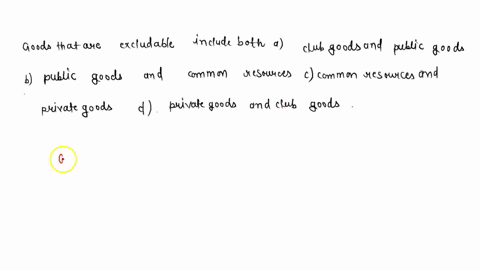 Goods that are excludable include both a) club goods and public goods
b) public goods and common resources c) common resources and
private goods d). private goods and club goods.
G